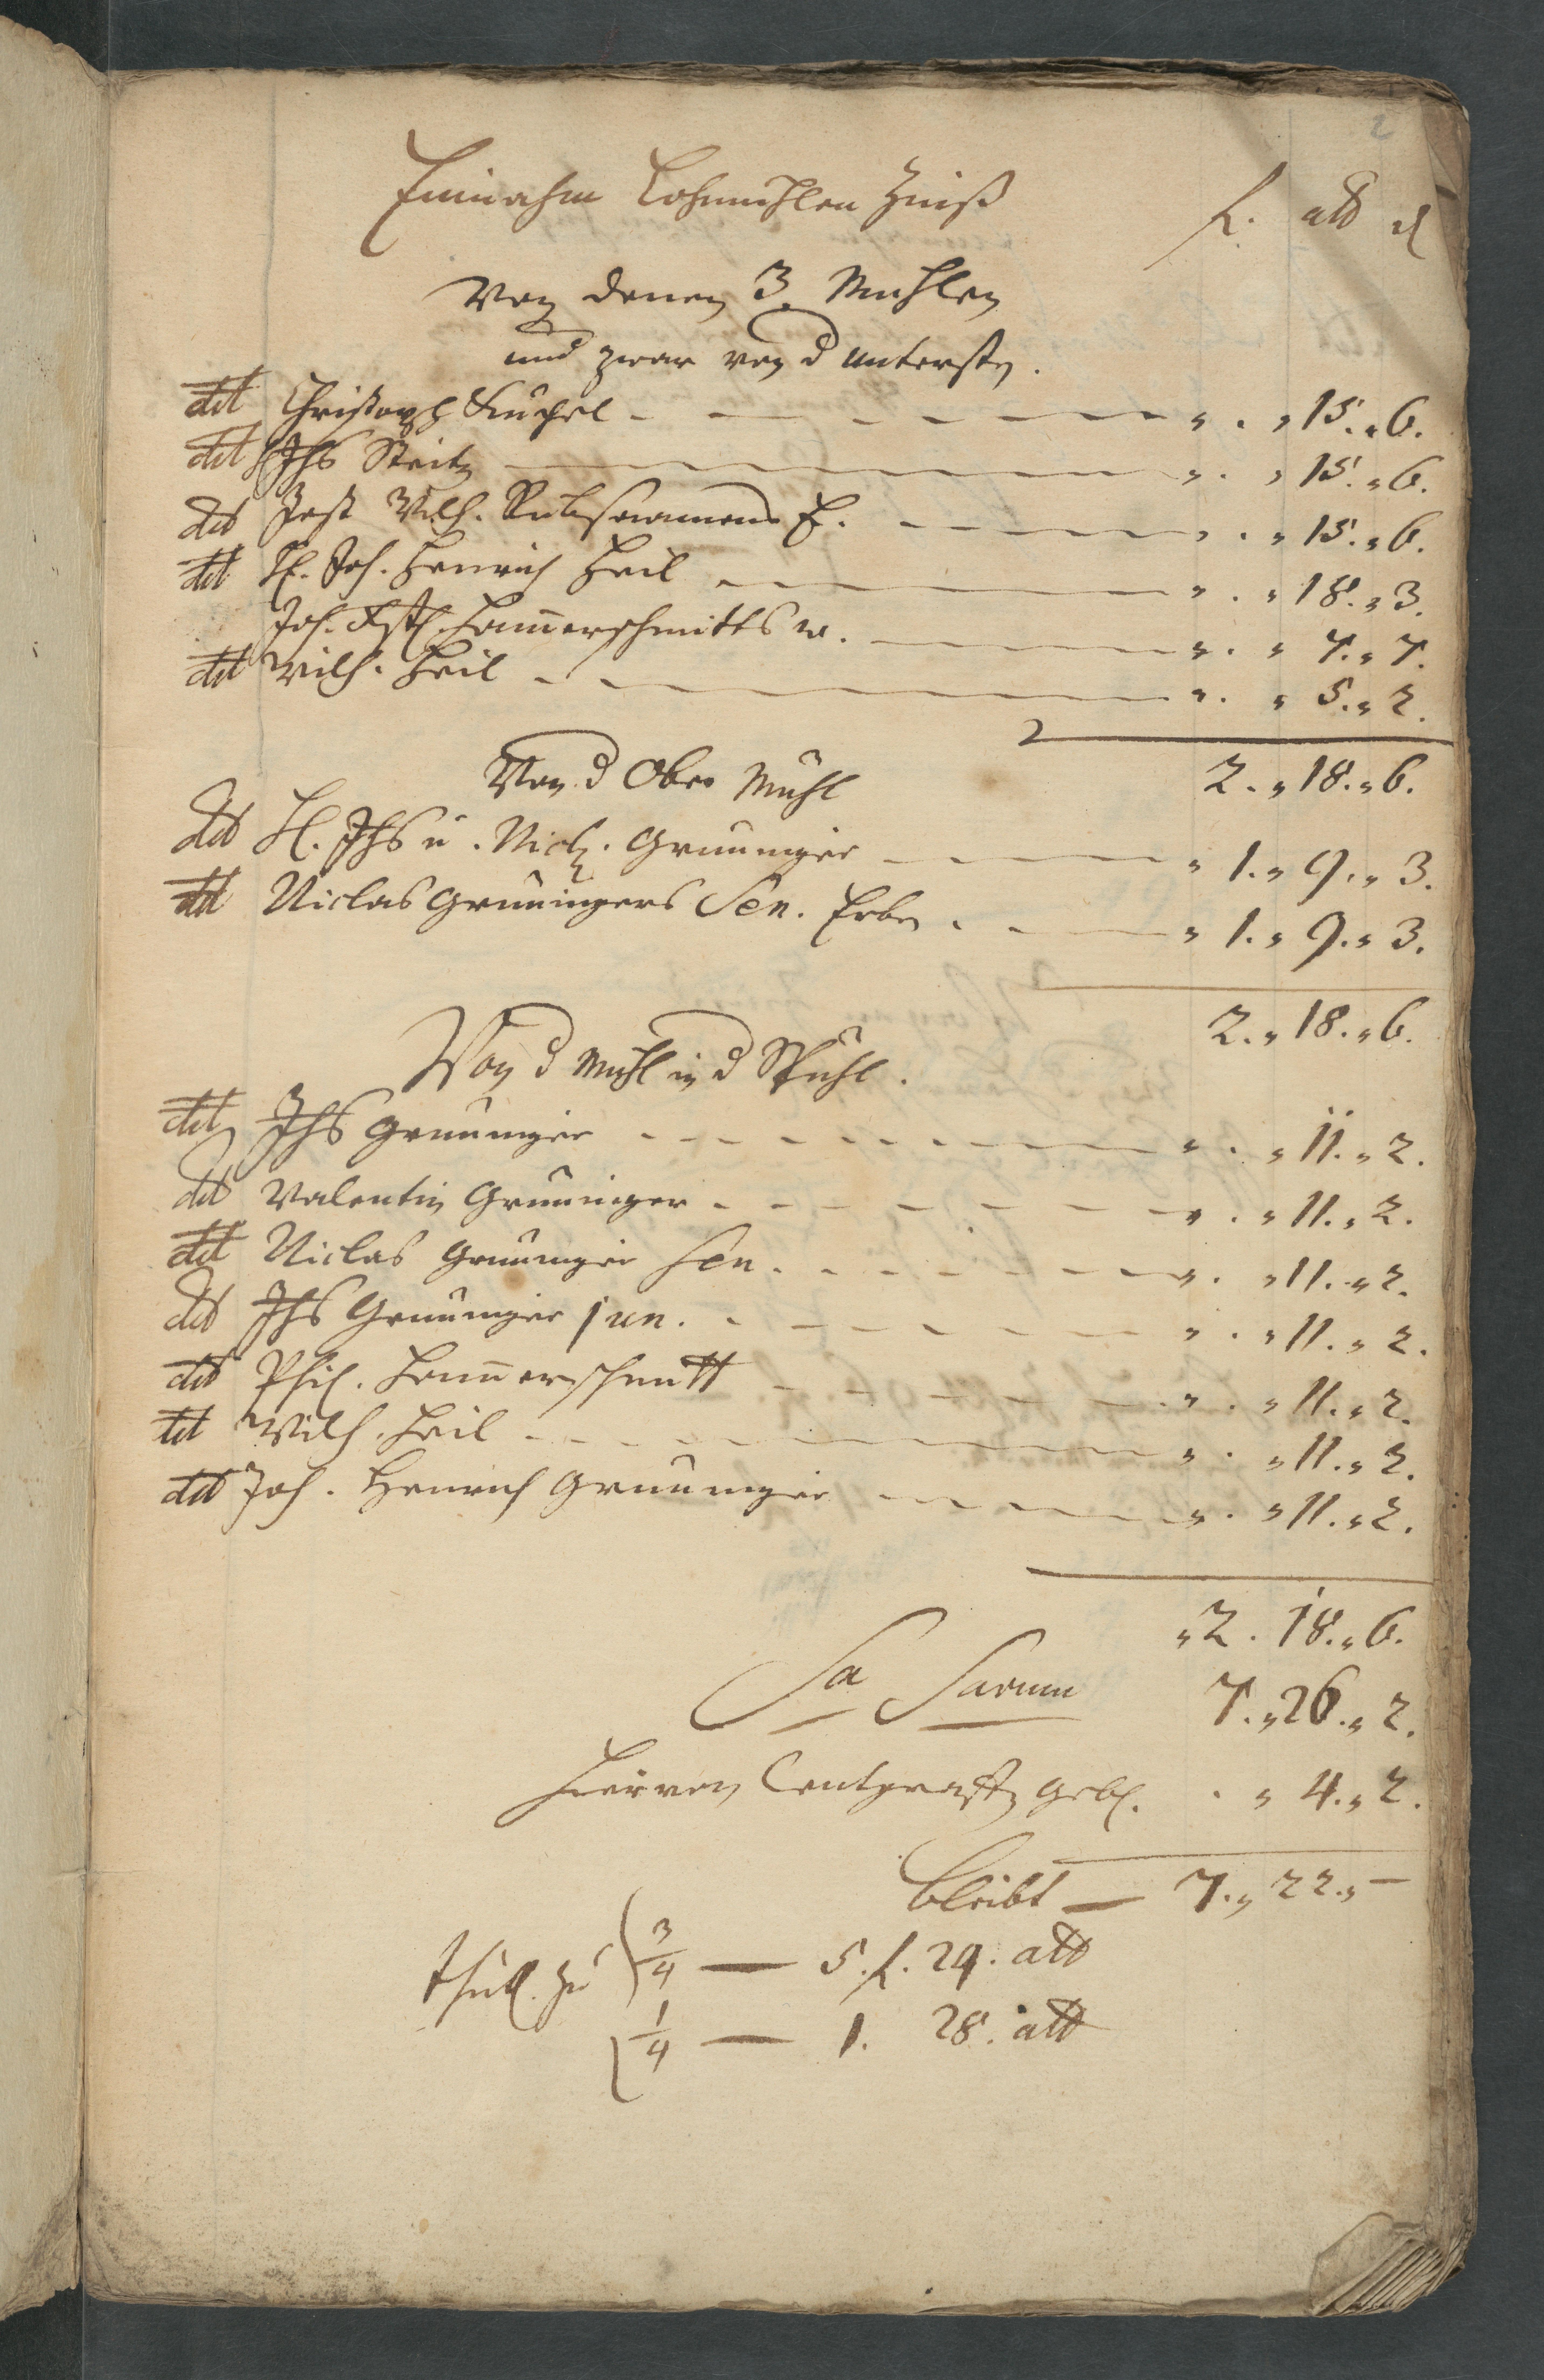 2
Einnahm Lohmühlen Zinß
f. alb d
Von denen 3. Mühlen
und zwar von d untersten.
dd Christoph Küchel - - - „ . „ 15. „ 6.
dd Jhs Steitz - „ . „ 15. „ 6.
dd Jost Wilh. Rübsaamens E. - - - „ . „ 15. „ 6.
dd H. Joh. Henrich Heil - - - „ . „ 18. „ 3.
Joh. Ham̄erschmitts w. - „ . „ 7. „ 7.
dd Wilh. Heil - - - „ . „ 5. „ 2.
2. „ 18. „ 6.
Von d Ober Mühl
dd H. Jhs u. Nicl. Grüninger - - - „ 1. „ 9. „ 3.
dd Niclas Grüningers Sen. Erben . - - „ 1. „ 9. „ 3.
2. „ 18. „ 6.
Von d Mühl in d Pfuhl.
dd Jhs Grüninger - - - „ . „ 11. „ 2.
dd Valentin Grüninger - - - „ . „ 11. „ 2.
dd Niclas Grüninger Sen. - - - „ . „ 11. „ 2.
dd Jhs Grüninger jun. - - - „ . „ 11. „ 2.
dd Phil. Ham̄erschmitt - - - „ . „ 11. „ 2.
dd Wilh. Heil - - - „ . „ 11. „ 2.
dd Joh. Henrich Grüninger - - - „ . „ 11. „ 2.
„ 2 . 18. „ 6.
Sa Sarum 7. „ 26. „ 2.
Hiervon Centgraff geb. . „ 4. „ 2.
bleibt — 7. „ 22. „ —
thut. zu 3/4 — 5. f. 24. alb
1/4 — 1. 28. alb